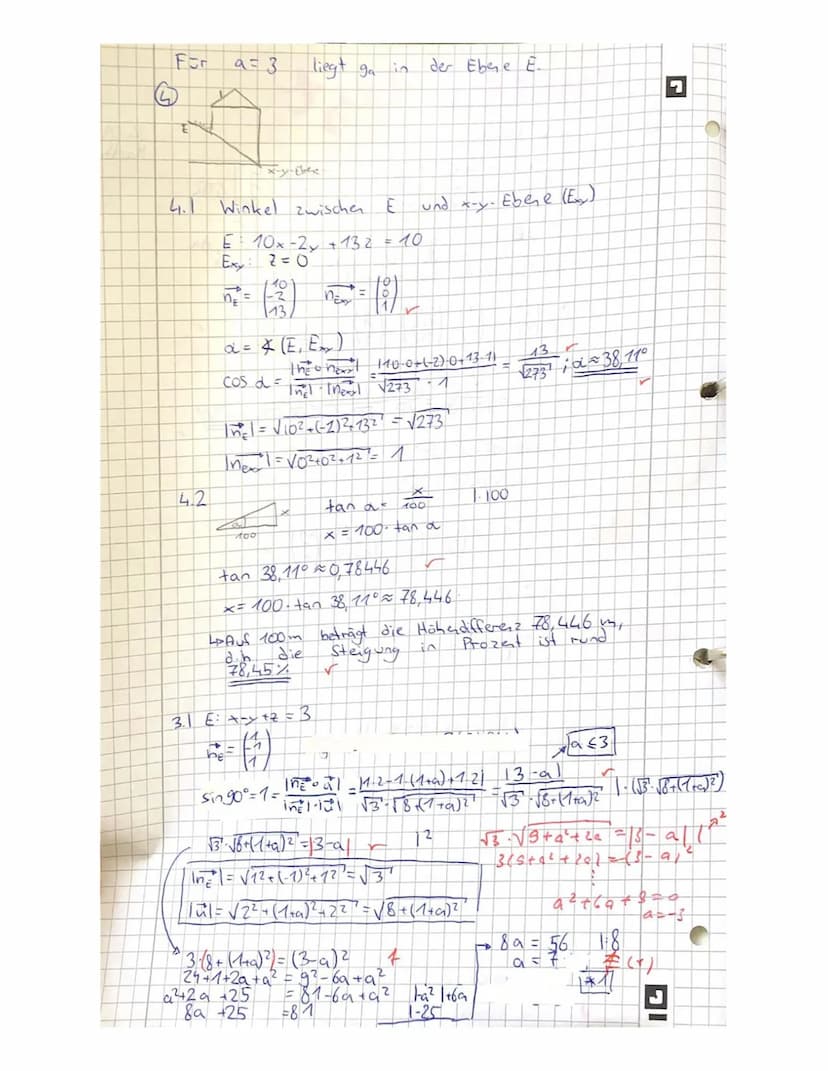 Für a = 3 liegt ga in der Ebene E.
4
E
x-y-Ebene
4.1 Winkel zwischen E und x-y-Ebene (Exy)
E: 10x -2y +13z = 10
Exy: z = 0
nE = (10 -2 13) nExy = (0 0 1) ✓
α = ∡ (E, Exy)
cos α = |nE ∘ nExy| / |nE| · |nExy| = |10·0+(-2)·0+13·1| / √273 · 1 = 13/√273 ; α ≈ 38,11° ✓
|nE| = √10²+(-2)²+13² = √273
|nExy| = √0²+0²+1² = 1
4.2 α x 100 tan α = x/100 |·100
x = 100 · tan α
tan 38,11° ≈ 0,78446 ✓
x = 100 · tan 38,11° ≈ 78,446
↳ Auf 100m beträgt die Höhendifferenz 78,446 m,
d.h. die Steigung in Prozent ist rund
78,45% ✓
3.1 E: x-y+z = 3
nE = (1 -1 1)
a ≤ 3
sin 90° = 1 = |nE ∘ u| / |nE|·|u| = |1·2-1·(1+a)+1·2| / √3 · √8+(1+a)² = |3-a| / √3 · √8+(1+a)² ✓ |·(√3 · √8+(1+a)²)
√3 · √8+(1+a)² = |3-a| ✓ |²
√3 · √9+a²+2a = |3-a| |²
3(9+a²+2a) = (3-a)²
⋮
a²+6a+9=0
a=-3
|nE| = √1²+(-1)²+1² = √3
|u| = √2²+(1+a)²+2² = √8+(1+a)²
3·(8+(1+a)²) = (3-a)²
24+1+2a+a² = 9²-6a+a²
a²+2a+25 = 81-6a+a² |-a² |+6a
8a +25 = 81 |-25
8a = 56 |:8
a = 7
*1